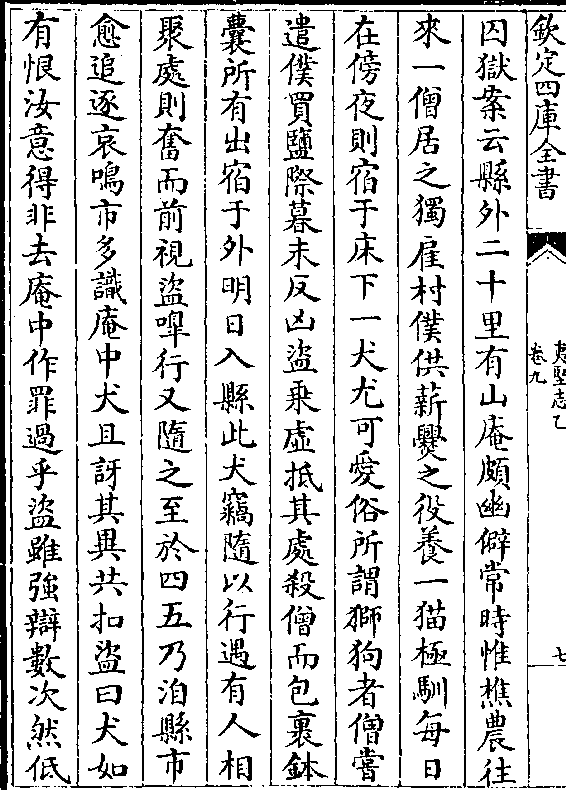 欽定四庫全書
夷堅志乙
卷九
七
囚獄案云縣外二十里有山庵頗幽僻常時惟樵農往
來一僧居之獨雇村僕供薪爨之役養一猫極馴每日
在傍夜則宿于床下一犬尤可愛俗所謂獅狗者僧嘗
遣僕買鹽際暮未反凶盜乘虛抵其處殺僧而包裹鉢
囊所有出宿于外明日入縣此犬竊隨以行遇有人相
聚處則奮而前視盜嘷行又隨之至於四五乃洎縣市
愈追逐哀鳴市多識庵中犬且訝其異共扣盜曰犬如
有恨汝意得非去庵中作罪過乎盜雖強辯數次然低